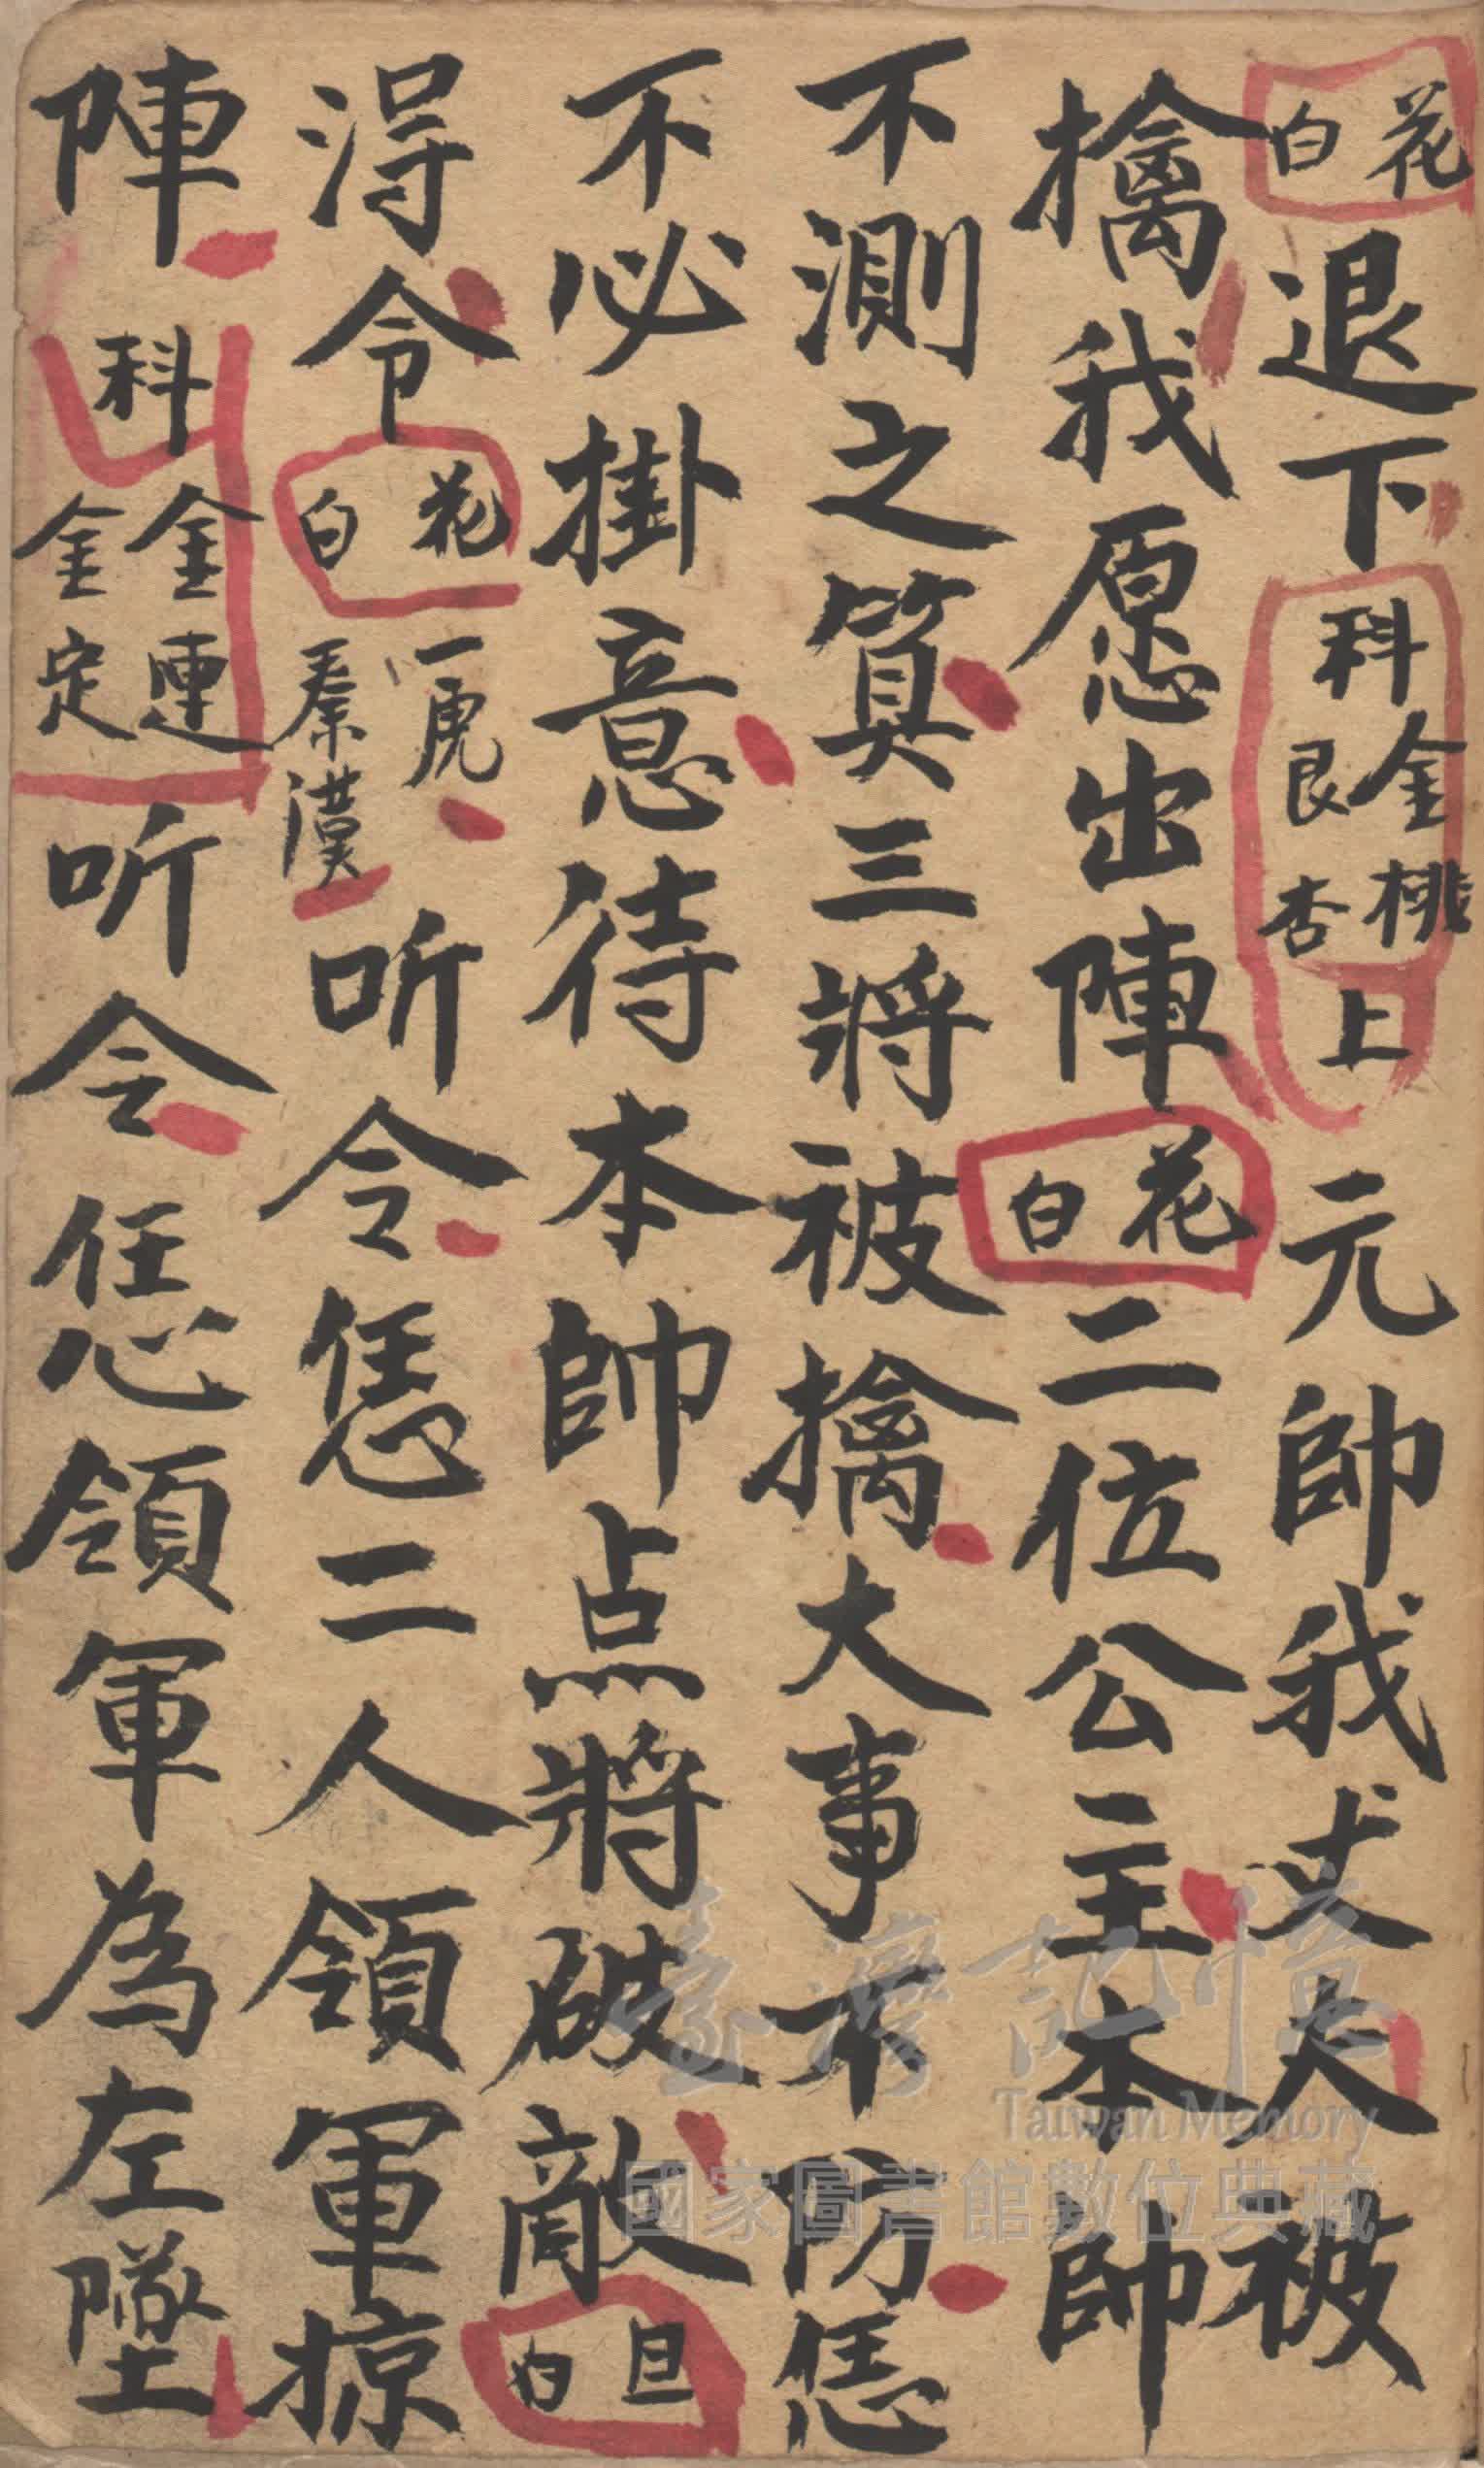 花白退下科金桃艮杏上元帥我丈夫被
擒我愿出陣花白二位公主本帥
不測之算三將被擒大事不防恁
不必掛意待本帥点將破敵旦白
淂令花白一虎秦漢听令恁二人領軍掠
陣科金連金定听令恁領軍為左墜
臺灣記憶
Taiwan Memory
國家圖書館數位典藏